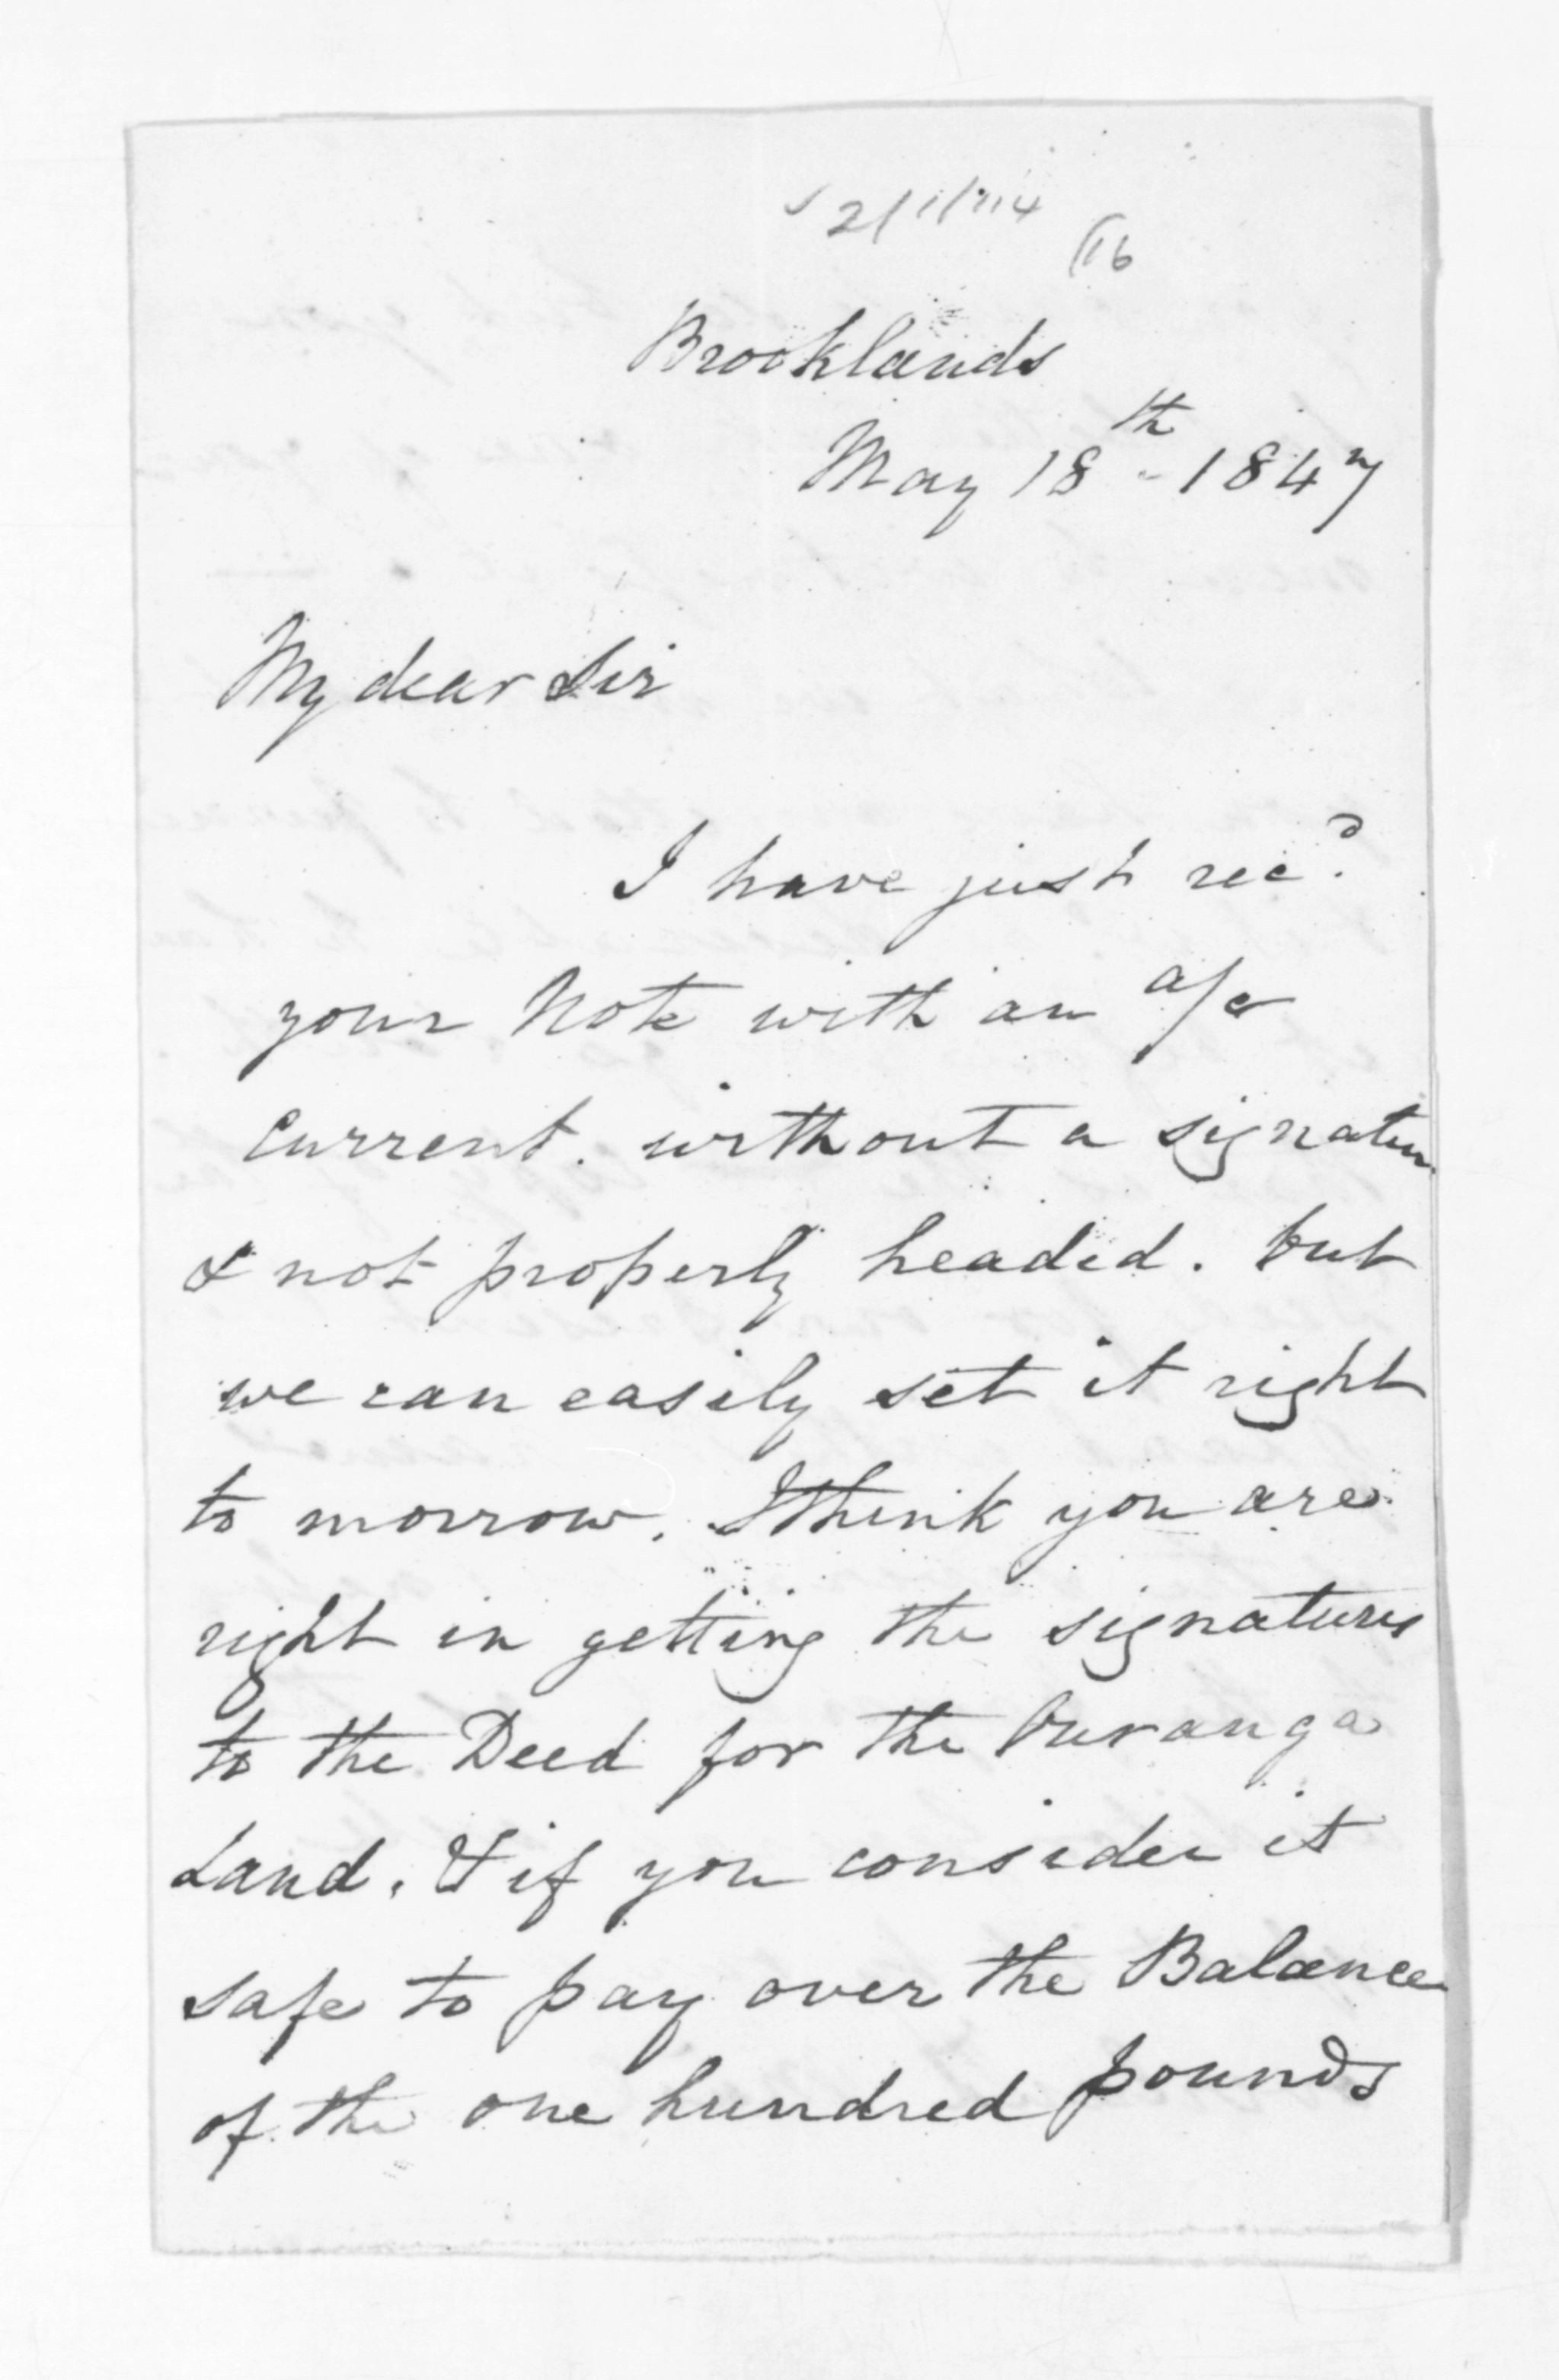 Brooklands
May 18th - 1847
My dear Sir
I have just recd.
your Note with an a/c
Current. without a signature
& not properly headed. but
we can easily set it right
to morrow. I think you are
right in getting the signatures
to the Deed for the
Land. & if you consider it
safe to pay over the Balance
of the one hundred pounds